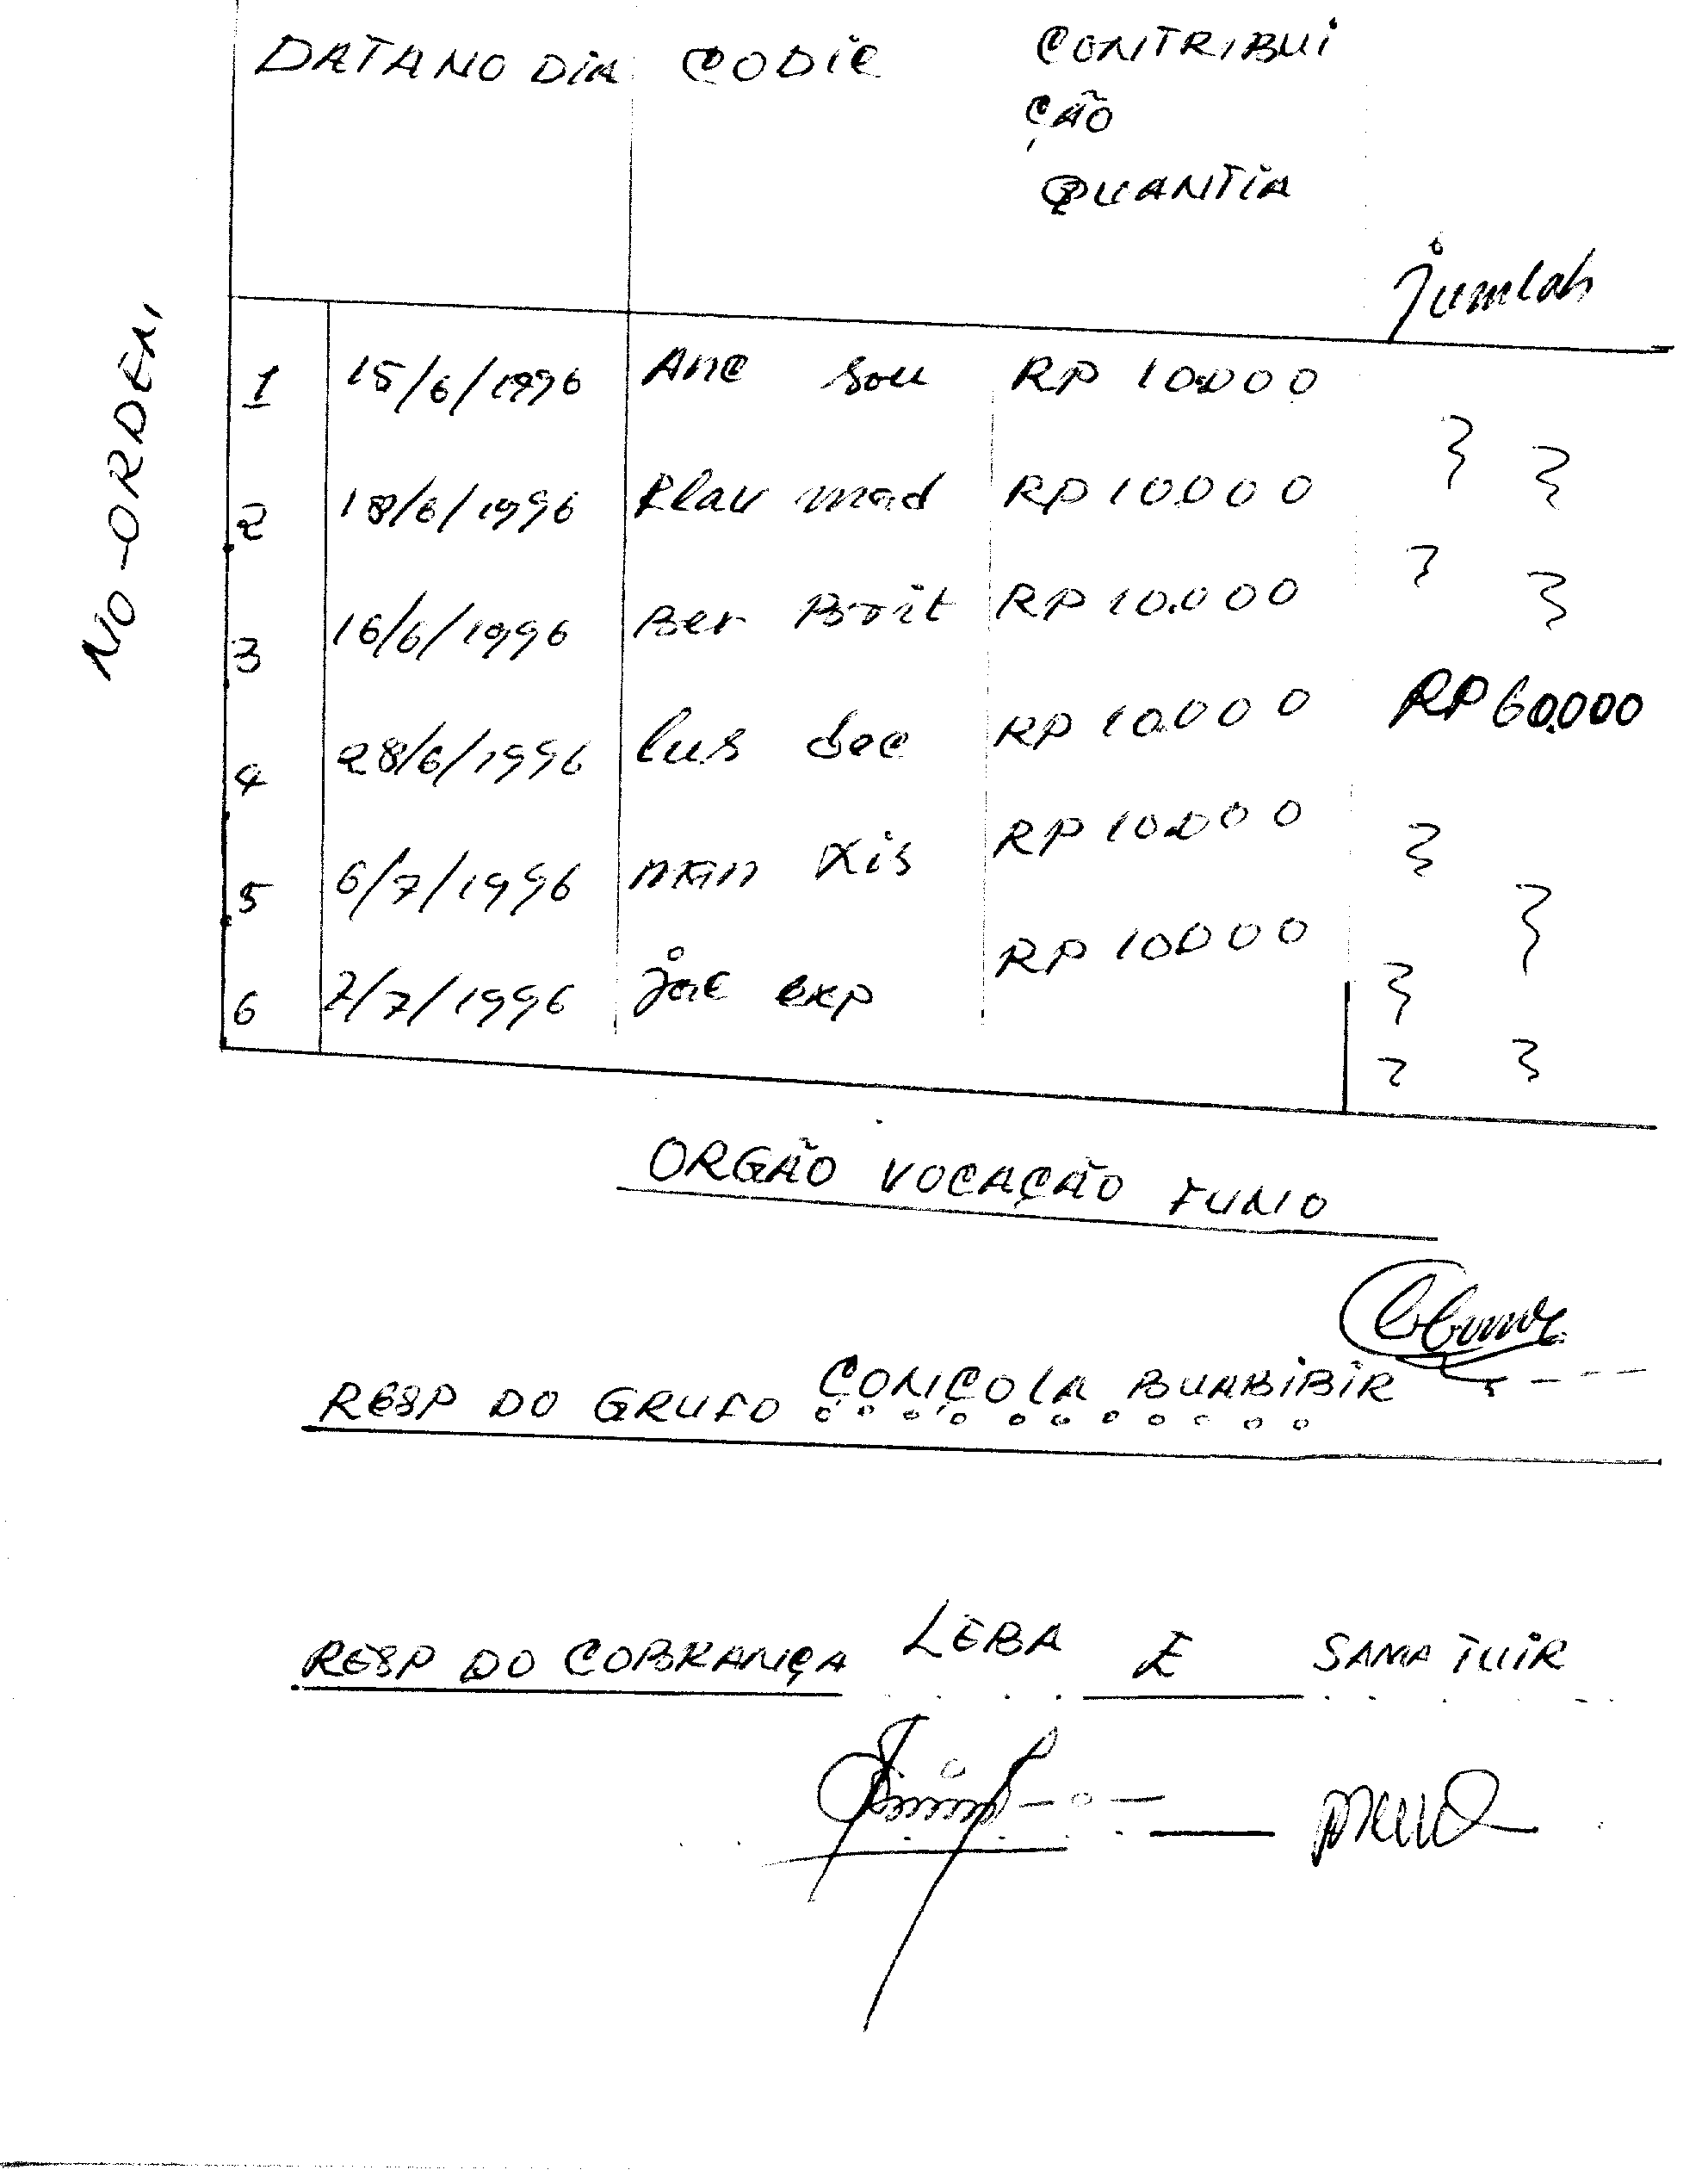 DATA NO DIA CODIC CONTRIBUI
ÇÃO
QUANTIA
jumlah
NO-ORDEM
1 15/6/1996 Anc sou RP 10.000
2 18/6/1996 Klau mad RP 10.000
3 16/6/1996 Ber Boit RP 10.000
4 28/6/1996 lus dec RP 10.000 RP 60.000
5 6/7/1996 man Xis RP 10.000
6 7/7/1996 jac exp RP 10.000
ORGÃO VOCAÇÃO FUNO
RESP DO GRUFO ÇONÇOLA BUABIBIR
RESP DO COBRANÇA LEBA E SAMA TUIR